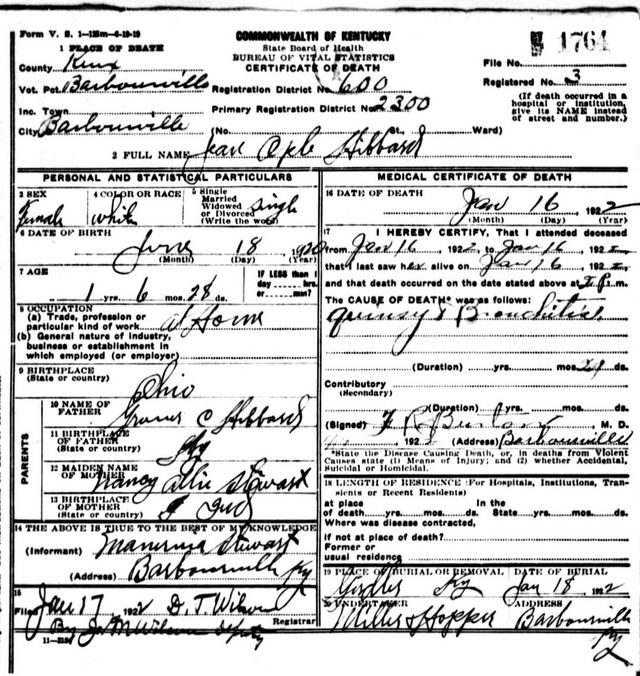 Form V. S. 1-125m-6-19-19
COMMONWEALTH OF KENTUCKY
State Board of Health
BUREAU OF VITAL STATISTICS
CERTIFICATE OF DEATH
1 PLACE OF DEATH
County Knox
Vot. Pct. Barbourville
Inc. Town
City Barbourville
Registration District No. 600
Primary Registration District No. 2300
(No. St., Ward)
File No. 1764
Registered No. 3
(If death occurred in a
hospital or institution,
give its NAME instead
of street and number.)
2 FULL NAME Jean Hibbard
PERSONAL AND STATISTICAL PARTICULARS
3 SEX
Female
4 COLOR OR RACE
white
5 Single
Married
Widowed
or Divorced
(Write the word) single
6 DATE OF BIRTH
June 18, 1920
(Month) (Day) (Year)
7 AGE
1 yrs. 6 mos. 28 ds.
IF LESS than 1
day hrs.
or min.
8 OCCUPATION
(a) Trade, profession or
particular kind of work at Home
(b) General nature of industry,
business or establishment in
which employed (or employer)
9 BIRTHPLACE
(State or country)
Ohio
PARENTS
10 NAME OF
FATHER
C Hibbard
11 BIRTHPLACE
OF FATHER
(State or country)
Ky
12 MAIDEN NAME
OF MOTHER
Nancy Allie Stewart
13 BIRTHPLACE
OF MOTHER
(State or country)
Ind
14 THE ABOVE IS TRUE TO THE BEST OF MY KNOWLEDGE
(Informant) Stewart
(Address) Barbourville Ky
15
Filed Jan 17, 1922 D. T. Wilson
Registrar
By J. M. Wilson Deputy
MEDICAL CERTIFICATE OF DEATH
16 DATE OF DEATH
Jan 16, 1922
(Month) (Day) (Year)
17 I HEREBY CERTIFY, That I attended deceased
from Jan 16, 1922 to Jan 16, 192
that I last saw alive on Jan 16, 192
and that death occurred on the date stated above at m.
The CAUSE OF DEATH* was as follows:
Quinsy & Bronchitis
(Duration) yrs. mos. ds.
Contributory
(Secondary)
(Duration) yrs. mos. ds.
(Signed) M. D.
192 (Address) Barbourville
*State the Disease Causing Death, or, in deaths from Violent
Causes state (1) Means of Injury; and (2) whether Accidental,
Suicidal or Homicidal.
18 LENGTH OF RESIDENCE (For Hospitals, Institutions, Tran-
sients or Recent Residents)
at place In the
of death yrs. mos. ds. State yrs. mos. ds.
Where was disease contracted,
if not at place of death?
Former or
usual residence
19 PLACE OF BURIAL OR REMOVAL DATE OF BURIAL
Ky Jan 18, 1922
20 UNDERTAKER ADDRESS
Miller & Hopper Barbourville
Ky